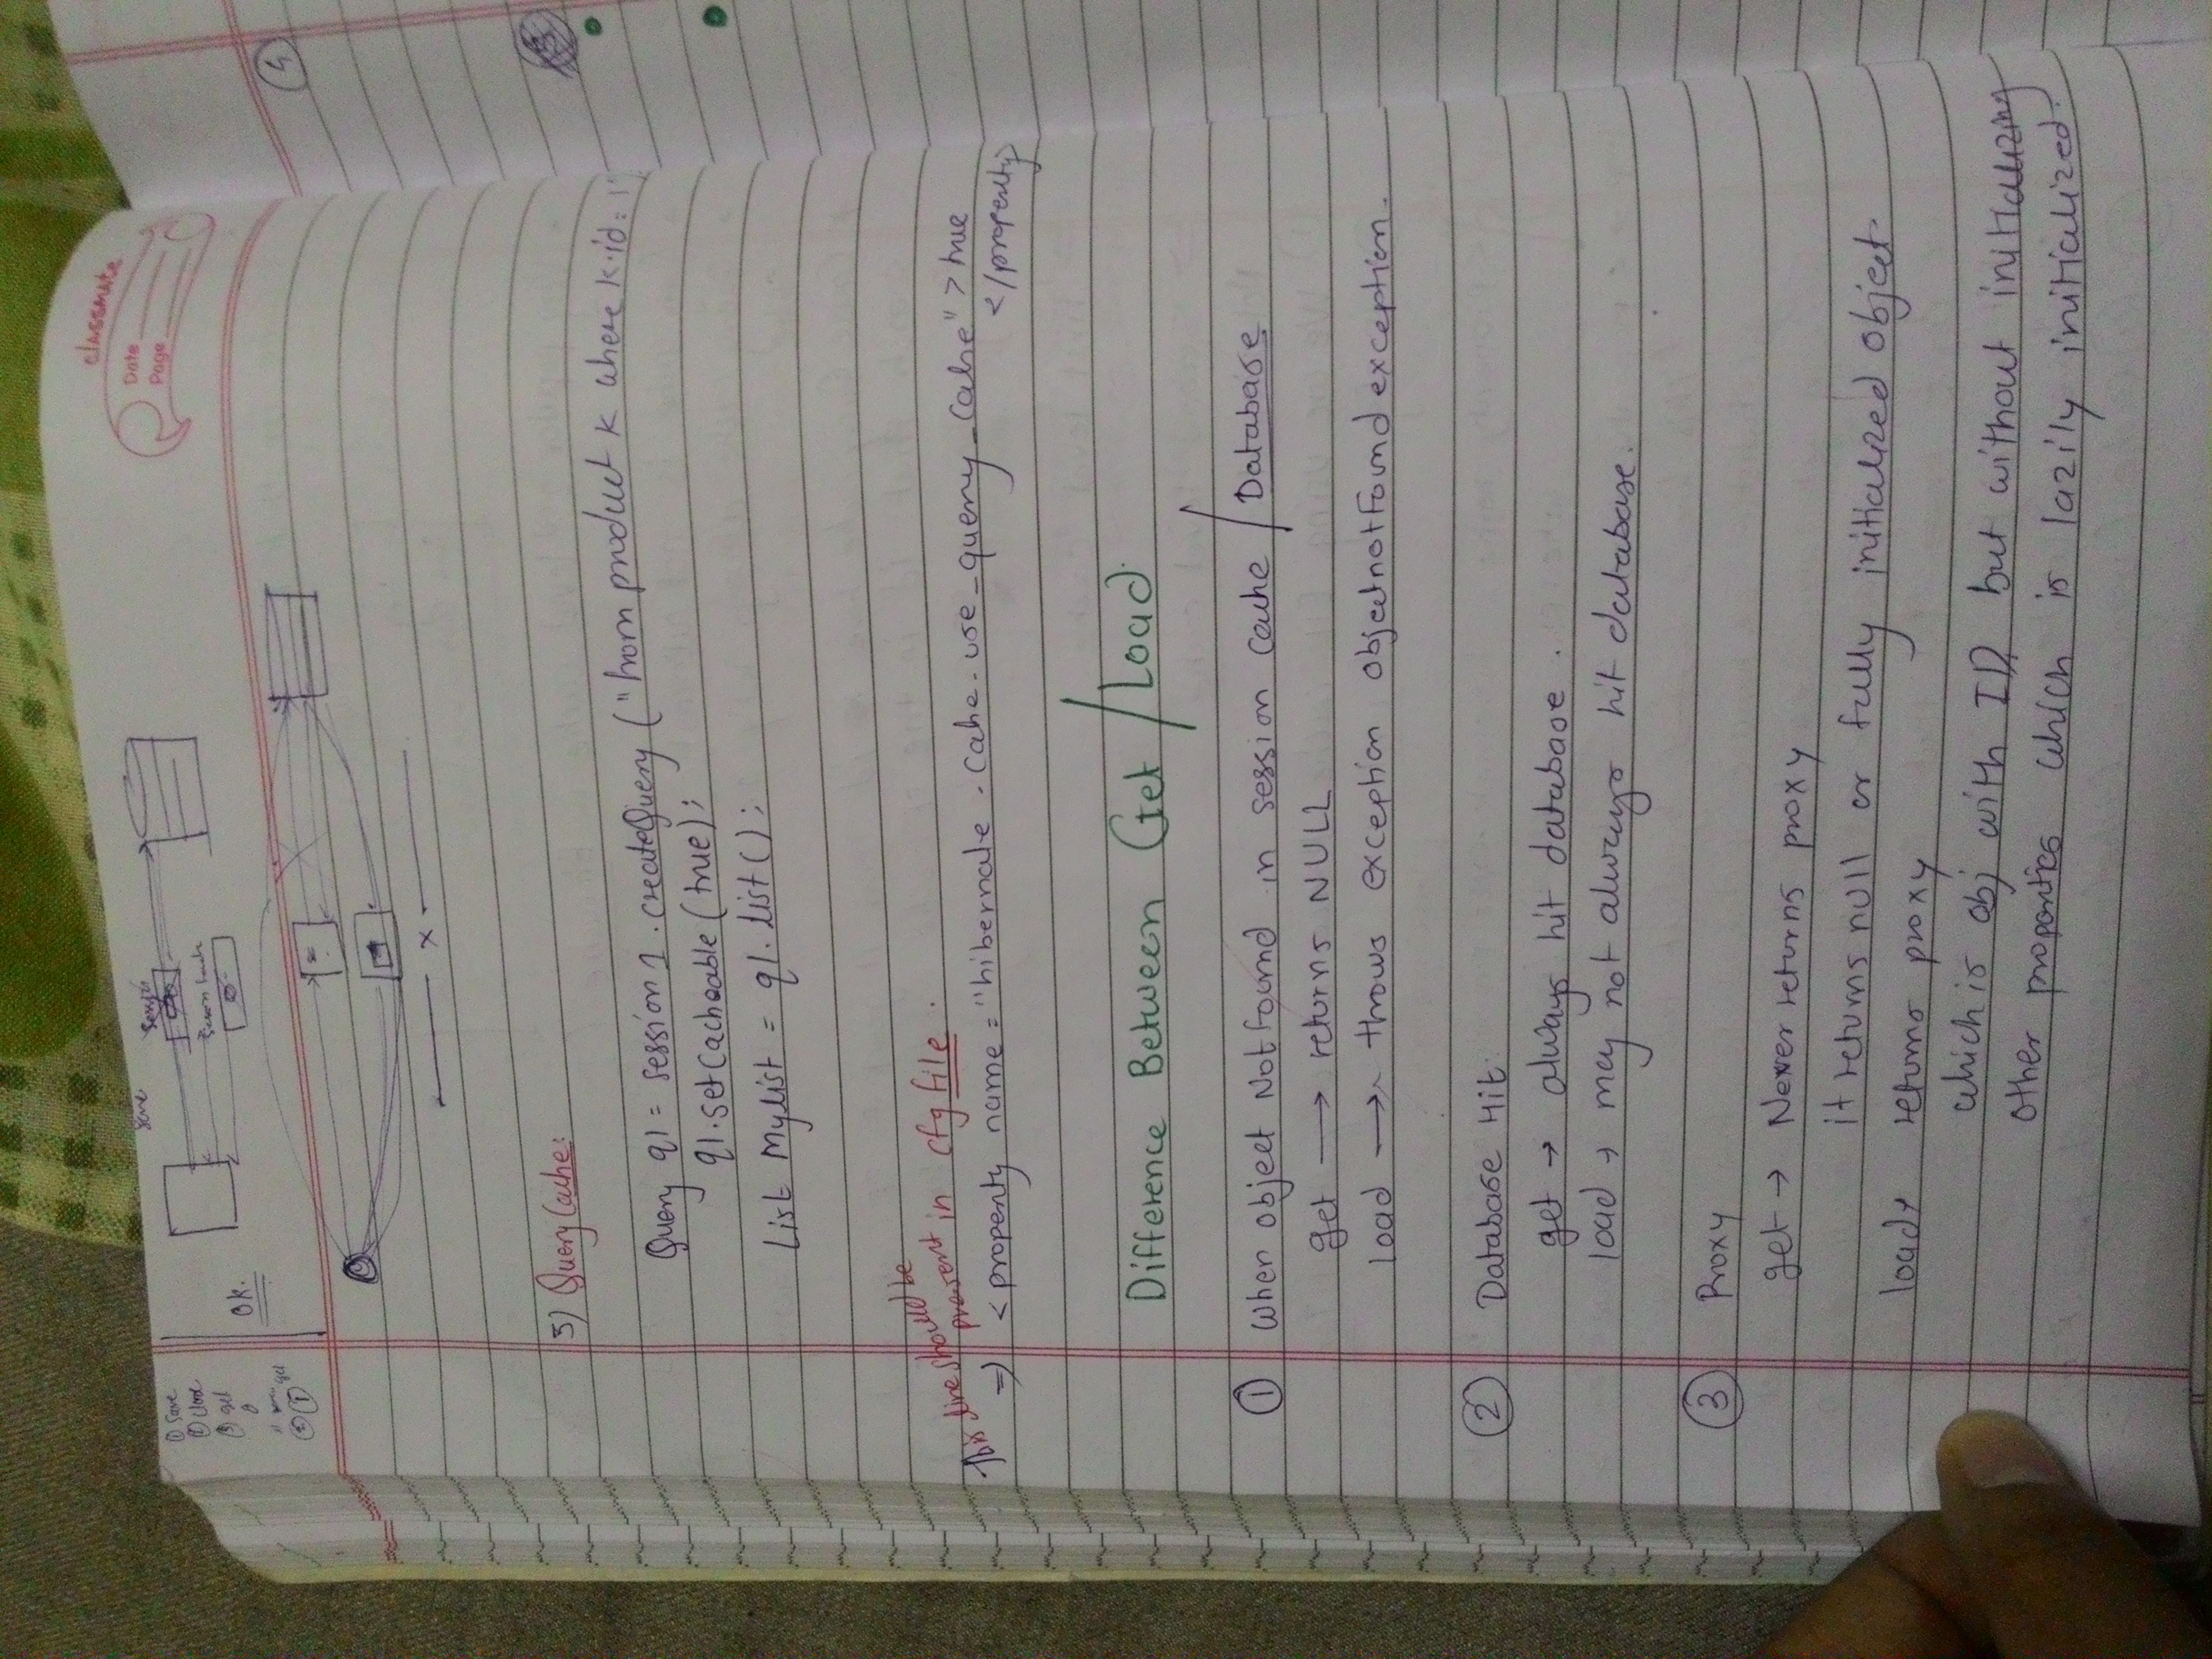 classmate
Date
Page
① Save
② close
③ get
get
② ①
OK.
Save
3) Query Cache:
Query q1 = session1.createQuery ("from product k where k.id=1"
q1.setCacheable (true);
List Mylist = q1.list();
This line should be
present in cfg file.
=> <property name="hibernate.cahe.use_query_cahe">true
</property>
Difference Between Get / Load
① When object Not found in session cache / Database
get → returns NULL
load → throws exception objectnotFound exception.
② Database Hit:
get → always hit database.
load → may not always hit database.
③ Proxy
get → Never returns proxy
it returns null or fully initialized object.
load → returns proxy
which is obj with ID, but without initializing
other properties which is lazily initialized.